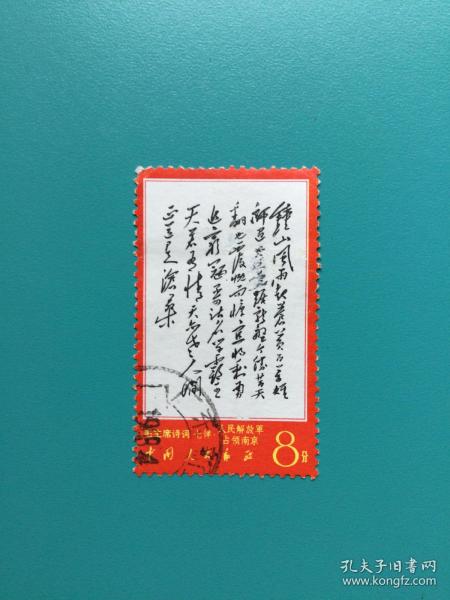 鐘山風雨起蒼黃百万雄
師過大江虎踞龍盤今勝昔天
翻地覆慨而慷宜將剩勇
追窮寇不可沽名學霸王
天若有情天亦老人间
正道是滄桑
毛主席诗词·七律·人民解放軍
占领南京
中国人民邮政
8分
孔夫子旧书网
www.kongfz.com